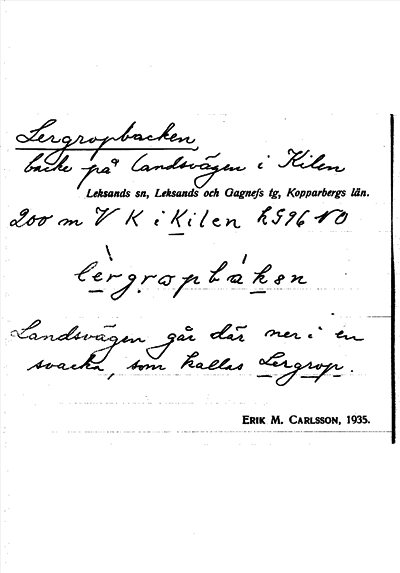 Lergropbacken
backe på landsvägen i Kilen
Leksands sn, Leksands och Gagnefs tg, Kopparbergs län.
200 m V K i Kilen h596 NO
lèrgropbáken
Landsvägen går där ner i en
svacka, som kallas Lergrop.
ERIK M. CARLSSON, 1935.